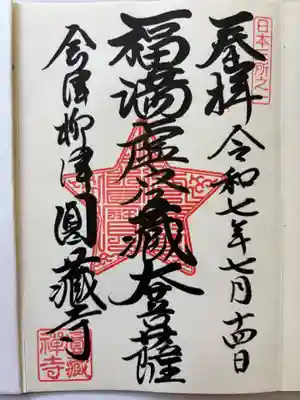 日本三所之一
奉拝
令和七年七月十四日
福満虚空藏大菩薩
会津柳津圓藏寺
圓藏禅寺